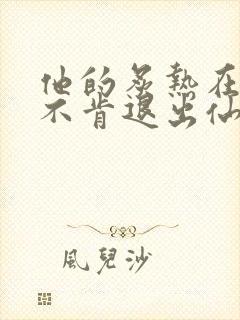 他的炙热在
不肯退出仙
風兒沙